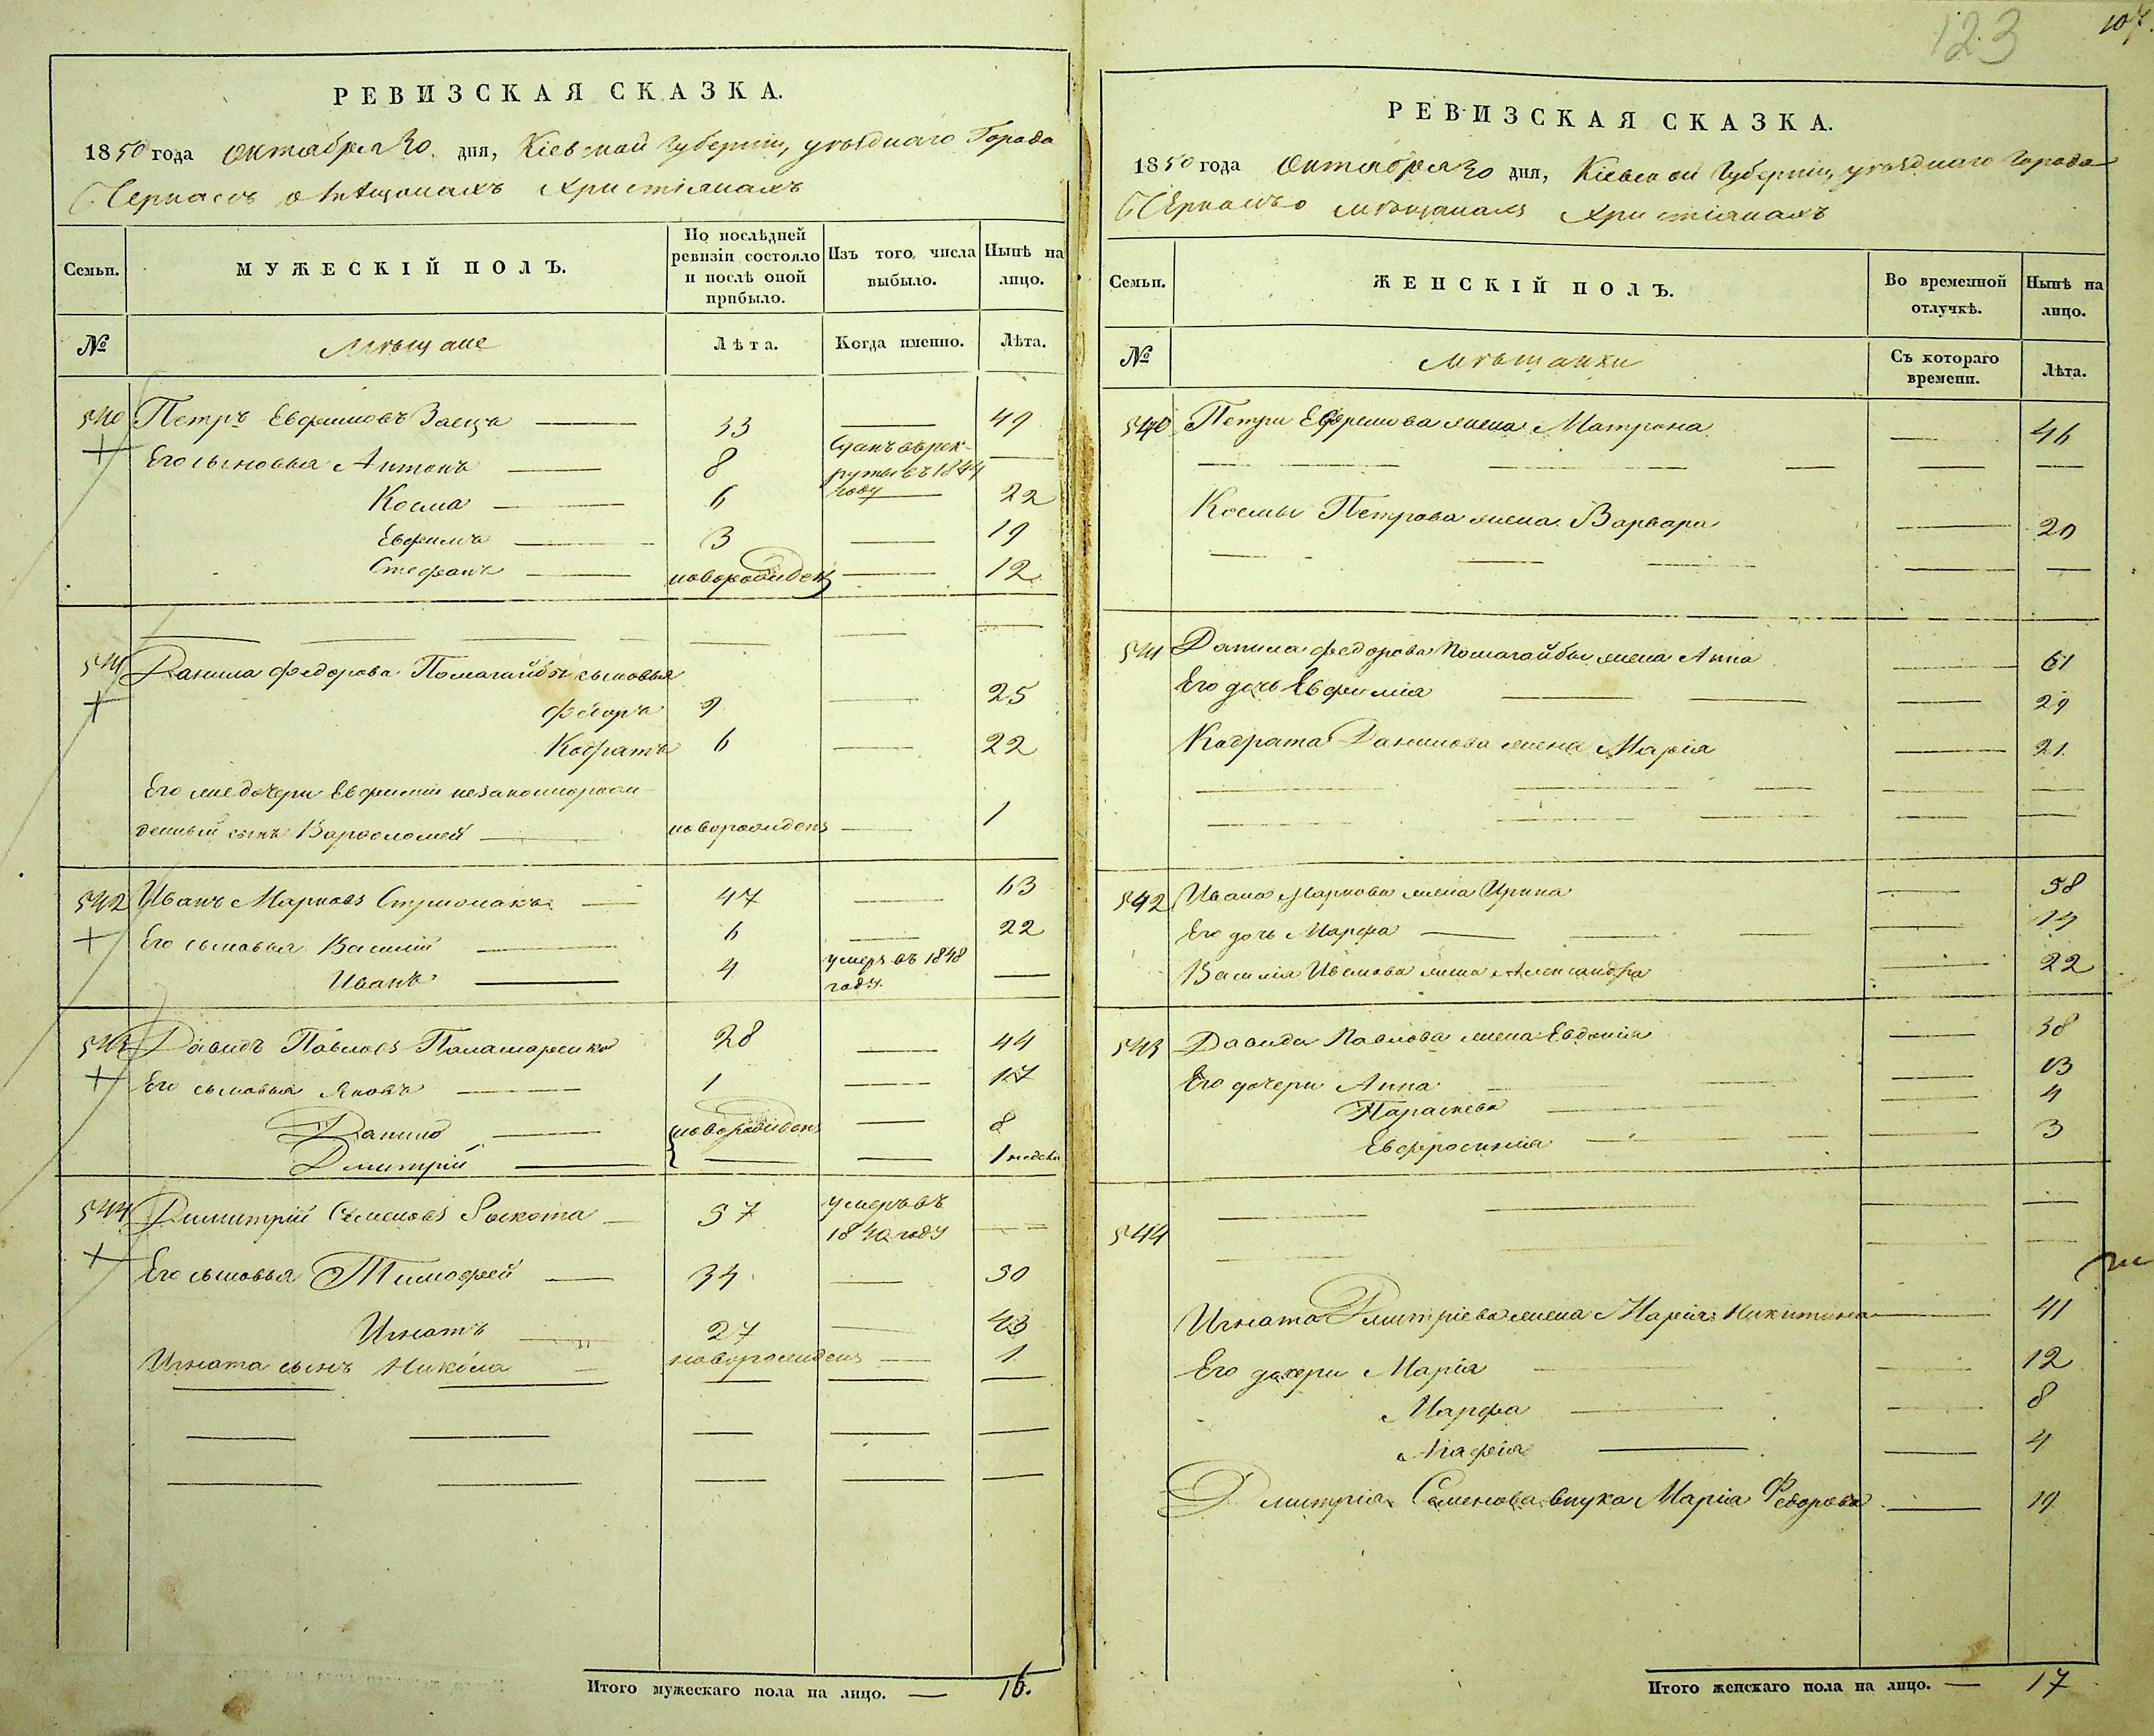 123
107.
РЕВИЗСКАЯ СКАЗКА.
1850 года Октября 30 дня, Кіевской Губерніи, уѣзднаго Города
Черкасъ о мѣщанахъ Христіянахъ
Семьи.
МУЖЕСКІЙ ПОЛЪ.
По послѣдней ревизіи состояло и послѣ оной прибыло.
Изъ того числа выбыло.
Нынѣ на лицо.
№
Мѣщане
Лѣта.
Когда именно.
Лѣта.
540 Петръ Евфимовъ Заецъ — 33 — 49
Его сыновья Антонъ — 8 Сданъ въ рекруты въ 1844 году —
Косма — 6 — 22
Евфимъ — 3 — 19
Стефанъ — новорожденъ — 12
541 Данила Федорова Помагайбы сыновья
Федоръ 9 — 25
Кодратъ 6 — 22
Его же дочери Евфиміи незаконнорож-
денный сынъ Варфоломей — новорожденъ — 1
542 Иванъ Марковъ Стрижакъ — 47 — 63
Его сыновья Василій — 6 — 22
Иванъ — 4 умеръ въ 1848 году —
543 Давидъ Павловъ Паламаренко 28 — 44
Его сыновья Яковъ — 1 — 17
Данило — новорожденъ — 8
Дмитрій — — — 1 недели
544 Димитрій Семеновъ Рокота — 57 умеръ въ 1840 году —
Его сыновья Тимофей — 34 — 50
Игнатъ — 27 — 43
Игната сынъ Никола — новорожденъ — 1
Итого мужескаго пола на лицо. — 16.
РЕВИЗСКАЯ СКАЗКА.
1850 года Октября 30 дня, Кіевской Губерніи, уѣзднаго Города
Черкасъ о мѣщанахъ Христіянахъ
Семьи.
ЖЕНСКІЙ ПОЛЪ.
Во временной отлучкѣ.
Нынѣ на лицо.
№
Мѣщанки
Съ котораго времени.
Лѣта.
540 Петра Ефремова жена Матрона — 46
Космы Петрова жена Варвара — 20
541 Данила Федорова Помагайбы жена Анна — 61
Его дочь Евфимія — 29
Кодрата Данилова жена Марія — 21
542 Ивана Маркова жена Ирина — 58
Его дочь Марфа — 19
Василія Иванова жена Александра — 22
543 Давида Павлова жена Евдокія — 38
Его дочери Анна — 13
Параскева — 4
Евфросинія — 3
544
Игната Дмитріева жена Марія Никитина — 41
Его дочери Марія — 12
Марфа — 8
Агафія — 4
Дмитрія Семенова внука Марія Федорова — 19
Итого женскаго пола на лицо. — 17